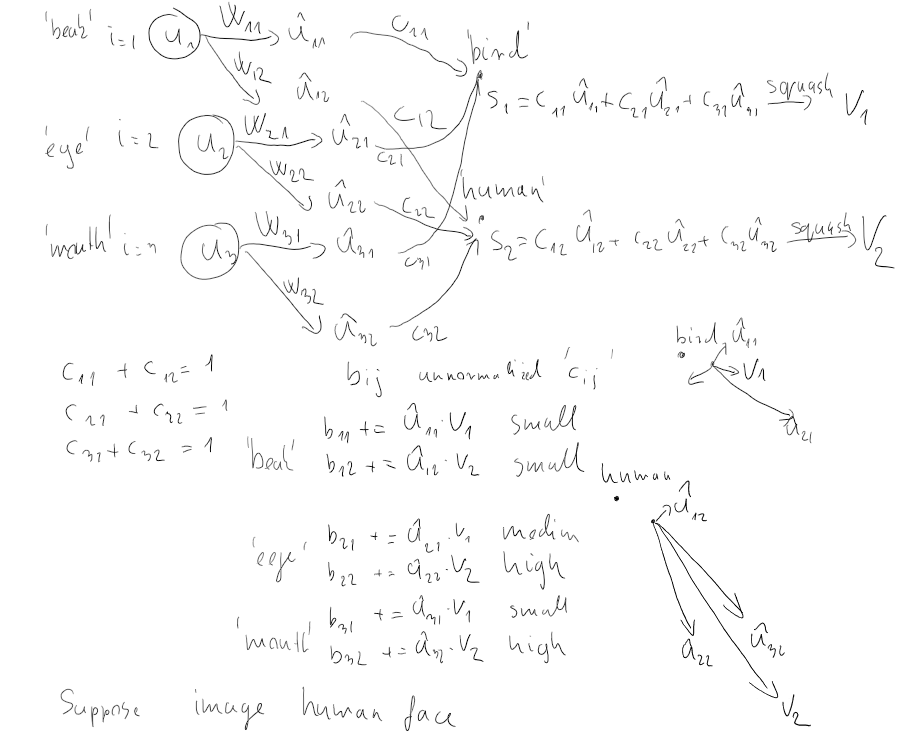 'beak' i=1 u₁ W₁₁ û₁₁ c₁₁ 'bird'
W₁₂ û₁₂ c₁₂ s₁ = c₁₁ û₁₁ + c₂₁ û₂₁ + c₃₁ û₃₁ squash V₁
'eye' i=2 u₂ W₂₁ û₂₁ c₂₁
W₂₂ û₂₂ c₂₂ 'human'
'mouth' i=3 u₃ W₃₁ û₃₁ c₃₁ s₂ = c₁₂ û₁₂ + c₂₂ û₂₂ + c₃₂ û₃₂ squash V₂
W₃₂ û₃₂ c₃₂
c₁₁ + c₁₂ = 1
c₂₁ + c₂₂ = 1
c₃₁ + c₃₂ = 1
bij unnormalized 'cij'
'beak' b₁₁ += û₁₁ · V₁ small
b₁₂ += û₁₂ · V₂ small
'eye' b₂₁ += û₂₁ · V₁ medium
b₂₂ += û₂₂ · V₂ high
'mouth' b₃₁ += û₃₁ · V₁ small
b₃₂ += û₃₂ · V₂ high
bird û₁₁
V₁
û₂₁
human
û₁₂
û₃₂
û₂₂
V₂
Suppose image human face